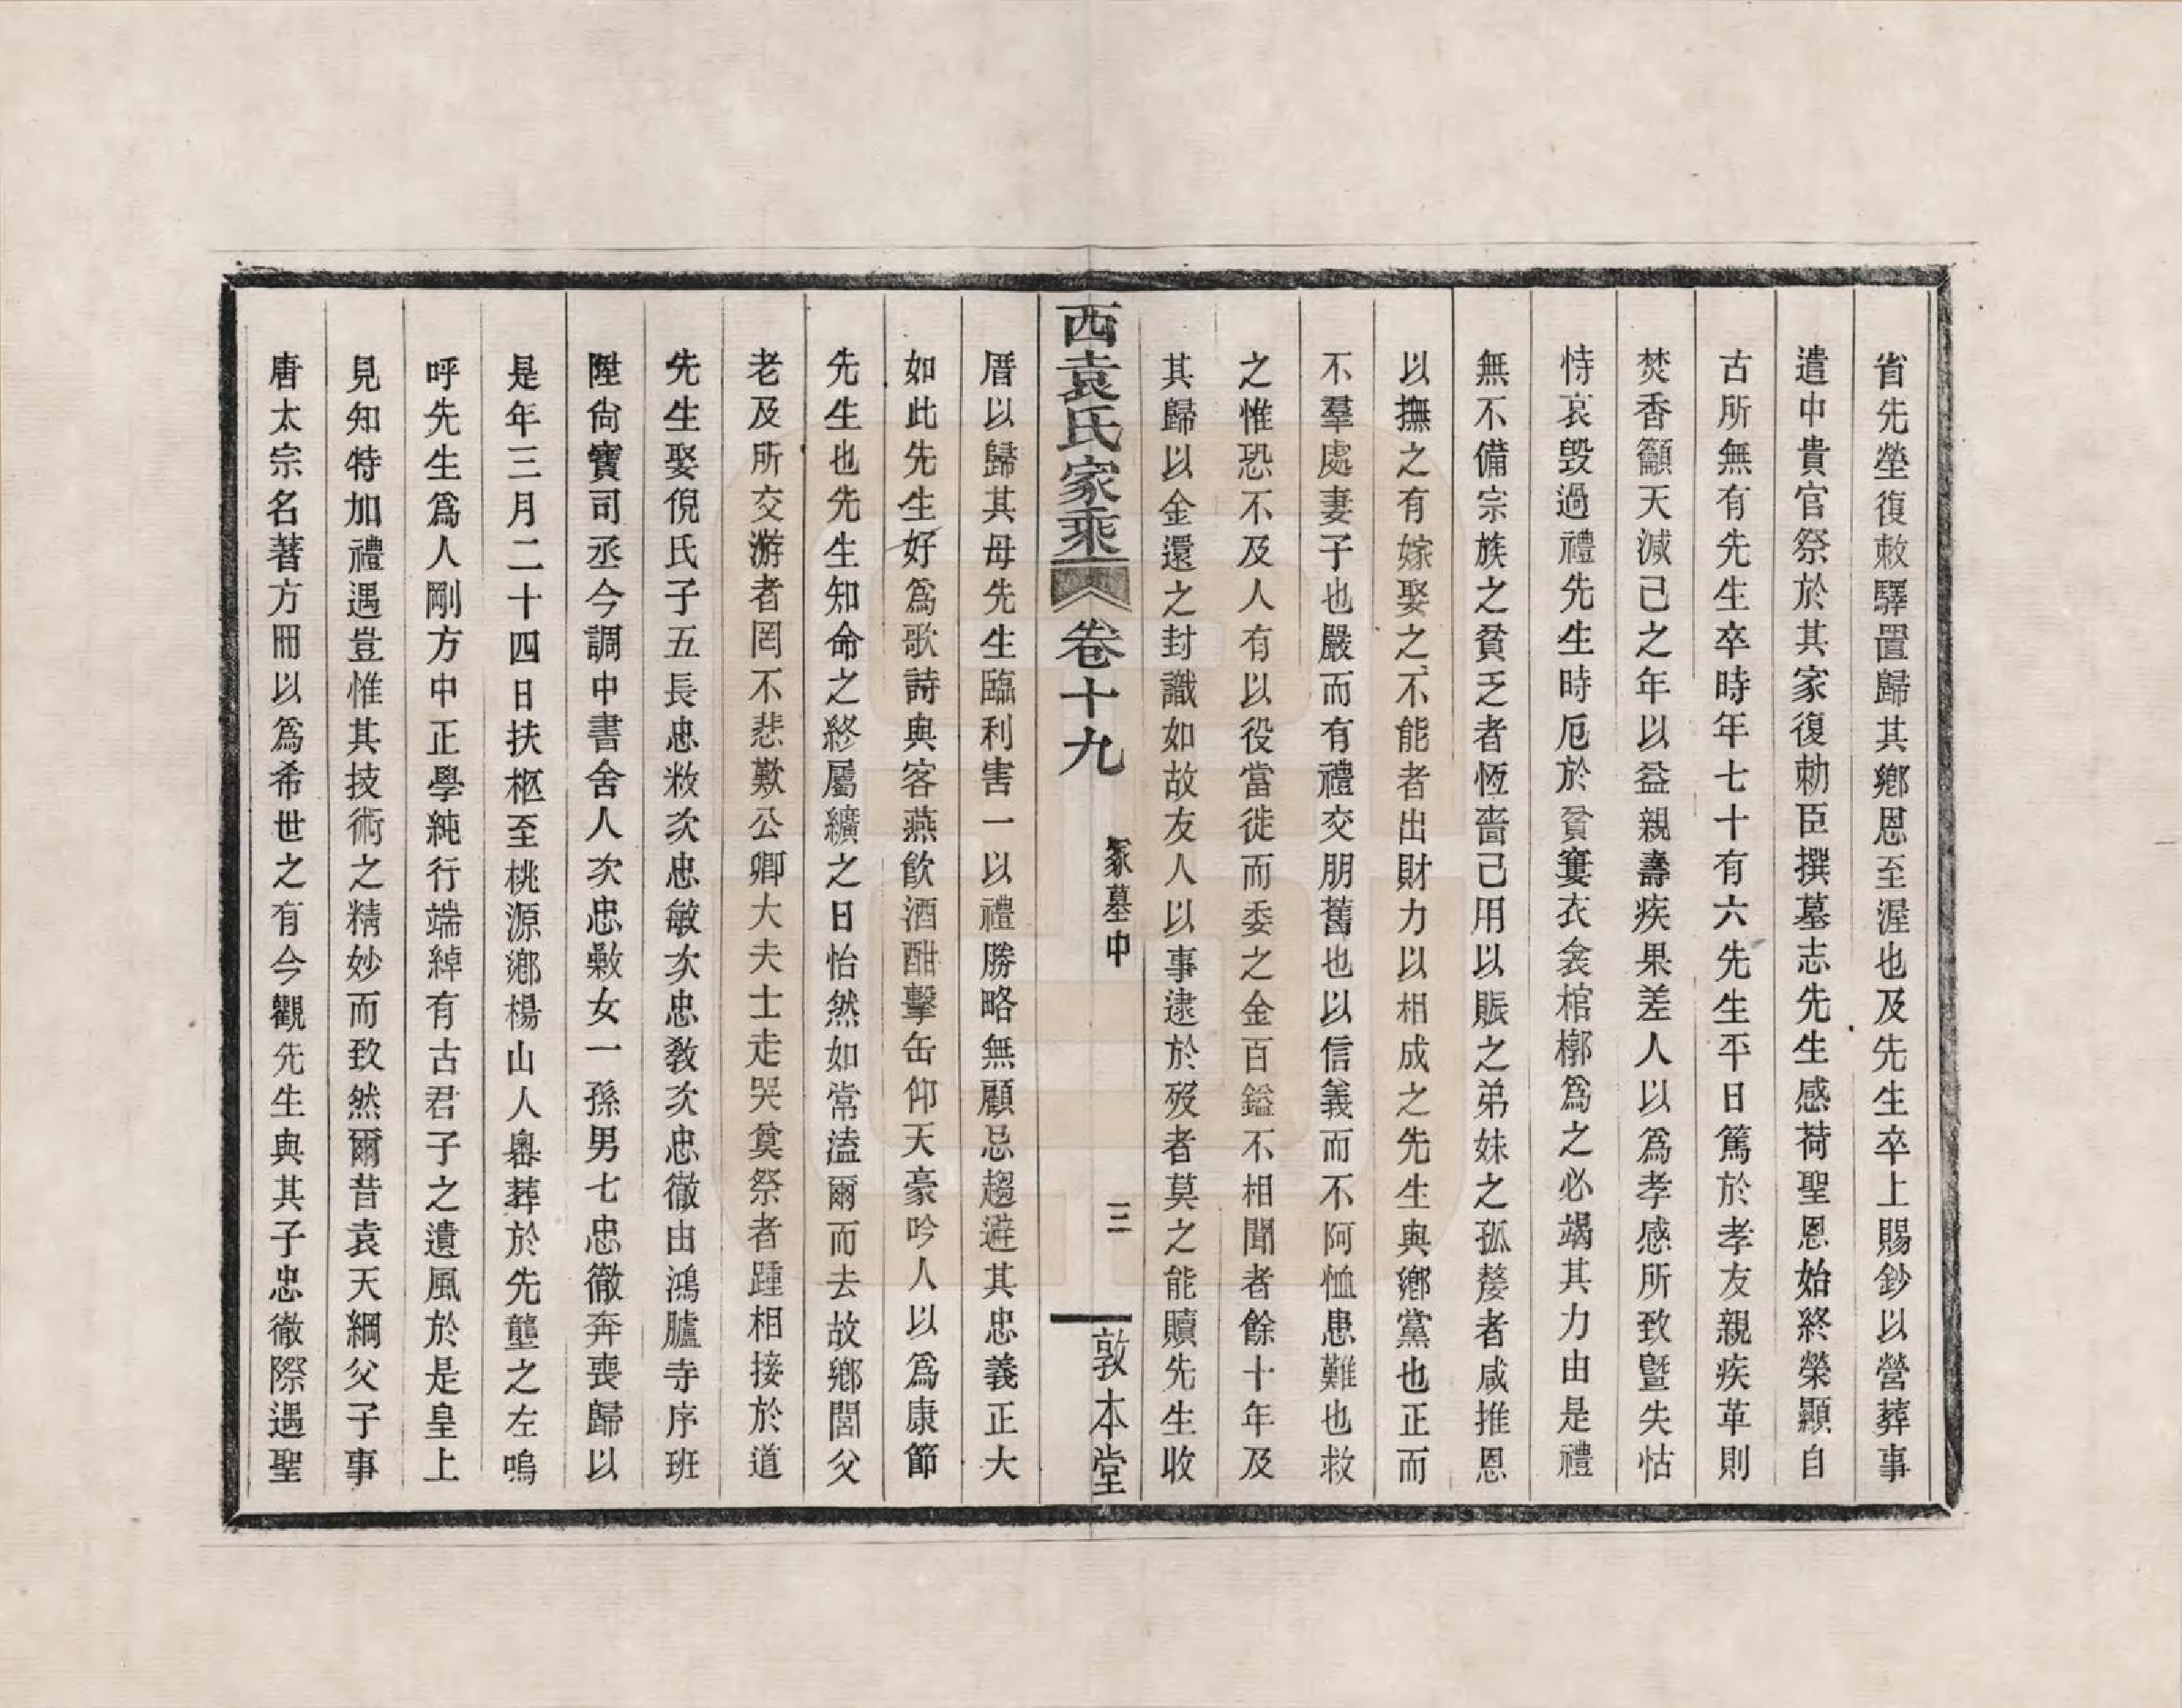 省先塋復敕驛置歸其鄉恩至渥也及先生卒上賜鈔以營葬事
遣中貴官祭於其家復勅臣撰墓志先生感荷聖恩始終榮顯自
古所無有先生卒時年七十有六先生平日篤於孝友親疾革則
焚香籲天減已之年以益親壽疾果差人以爲孝感所致曁失怙
恃哀毀過禮先生時厄於貧窶衣衾棺槨爲之必竭其力由是禮
無不備宗族之貧乏者恆嗇己用以賑之弟妹之孤嫠者咸推恩
以撫之有嫁娶之不能者出財力以相成之先生與鄉黨也正而
不羣處妻子也嚴而有禮交朋舊也以信義而不阿恤患難也救
之惟恐不及人有以役當徙而委之金百鎰不相聞者餘十年及
其歸以金還之封識如故友人以事逮於歿者莫之能贖先生收
西袁氏家乘 卷十九 冢墓中 三 敦本堂
厝以歸其母先生臨利害一以禮勝略無顧忌趨避其忠義正大
如此先生好爲歌詩與客燕飮酒酣擊缶仰天豪吟人以爲康節
先生也先生知命之終屬纊之日怡然如常溘爾而去故鄉閭父
老及所交游者罔不悲歎公卿大夫士走哭奠祭者踵相接於道
先生娶倪氏子五長忠敉次忠敏次忠敎次忠徹由鴻臚寺序班
陞尙寶司丞今調中書舍人次忠㪤女一孫男七忠徹奔喪歸以
是年三月二十四日扶柩至桃源鄉楊山人嶴葬於先壟之左嗚
呼先生爲人剛方中正學純行端綽有古君子之遺風於是皇上
見知特加禮遇豈惟其技術之精妙而致然爾昔袁天綱父子事
唐太宗名著方冊以爲希世之有今觀先生與其子忠徹際遇聖